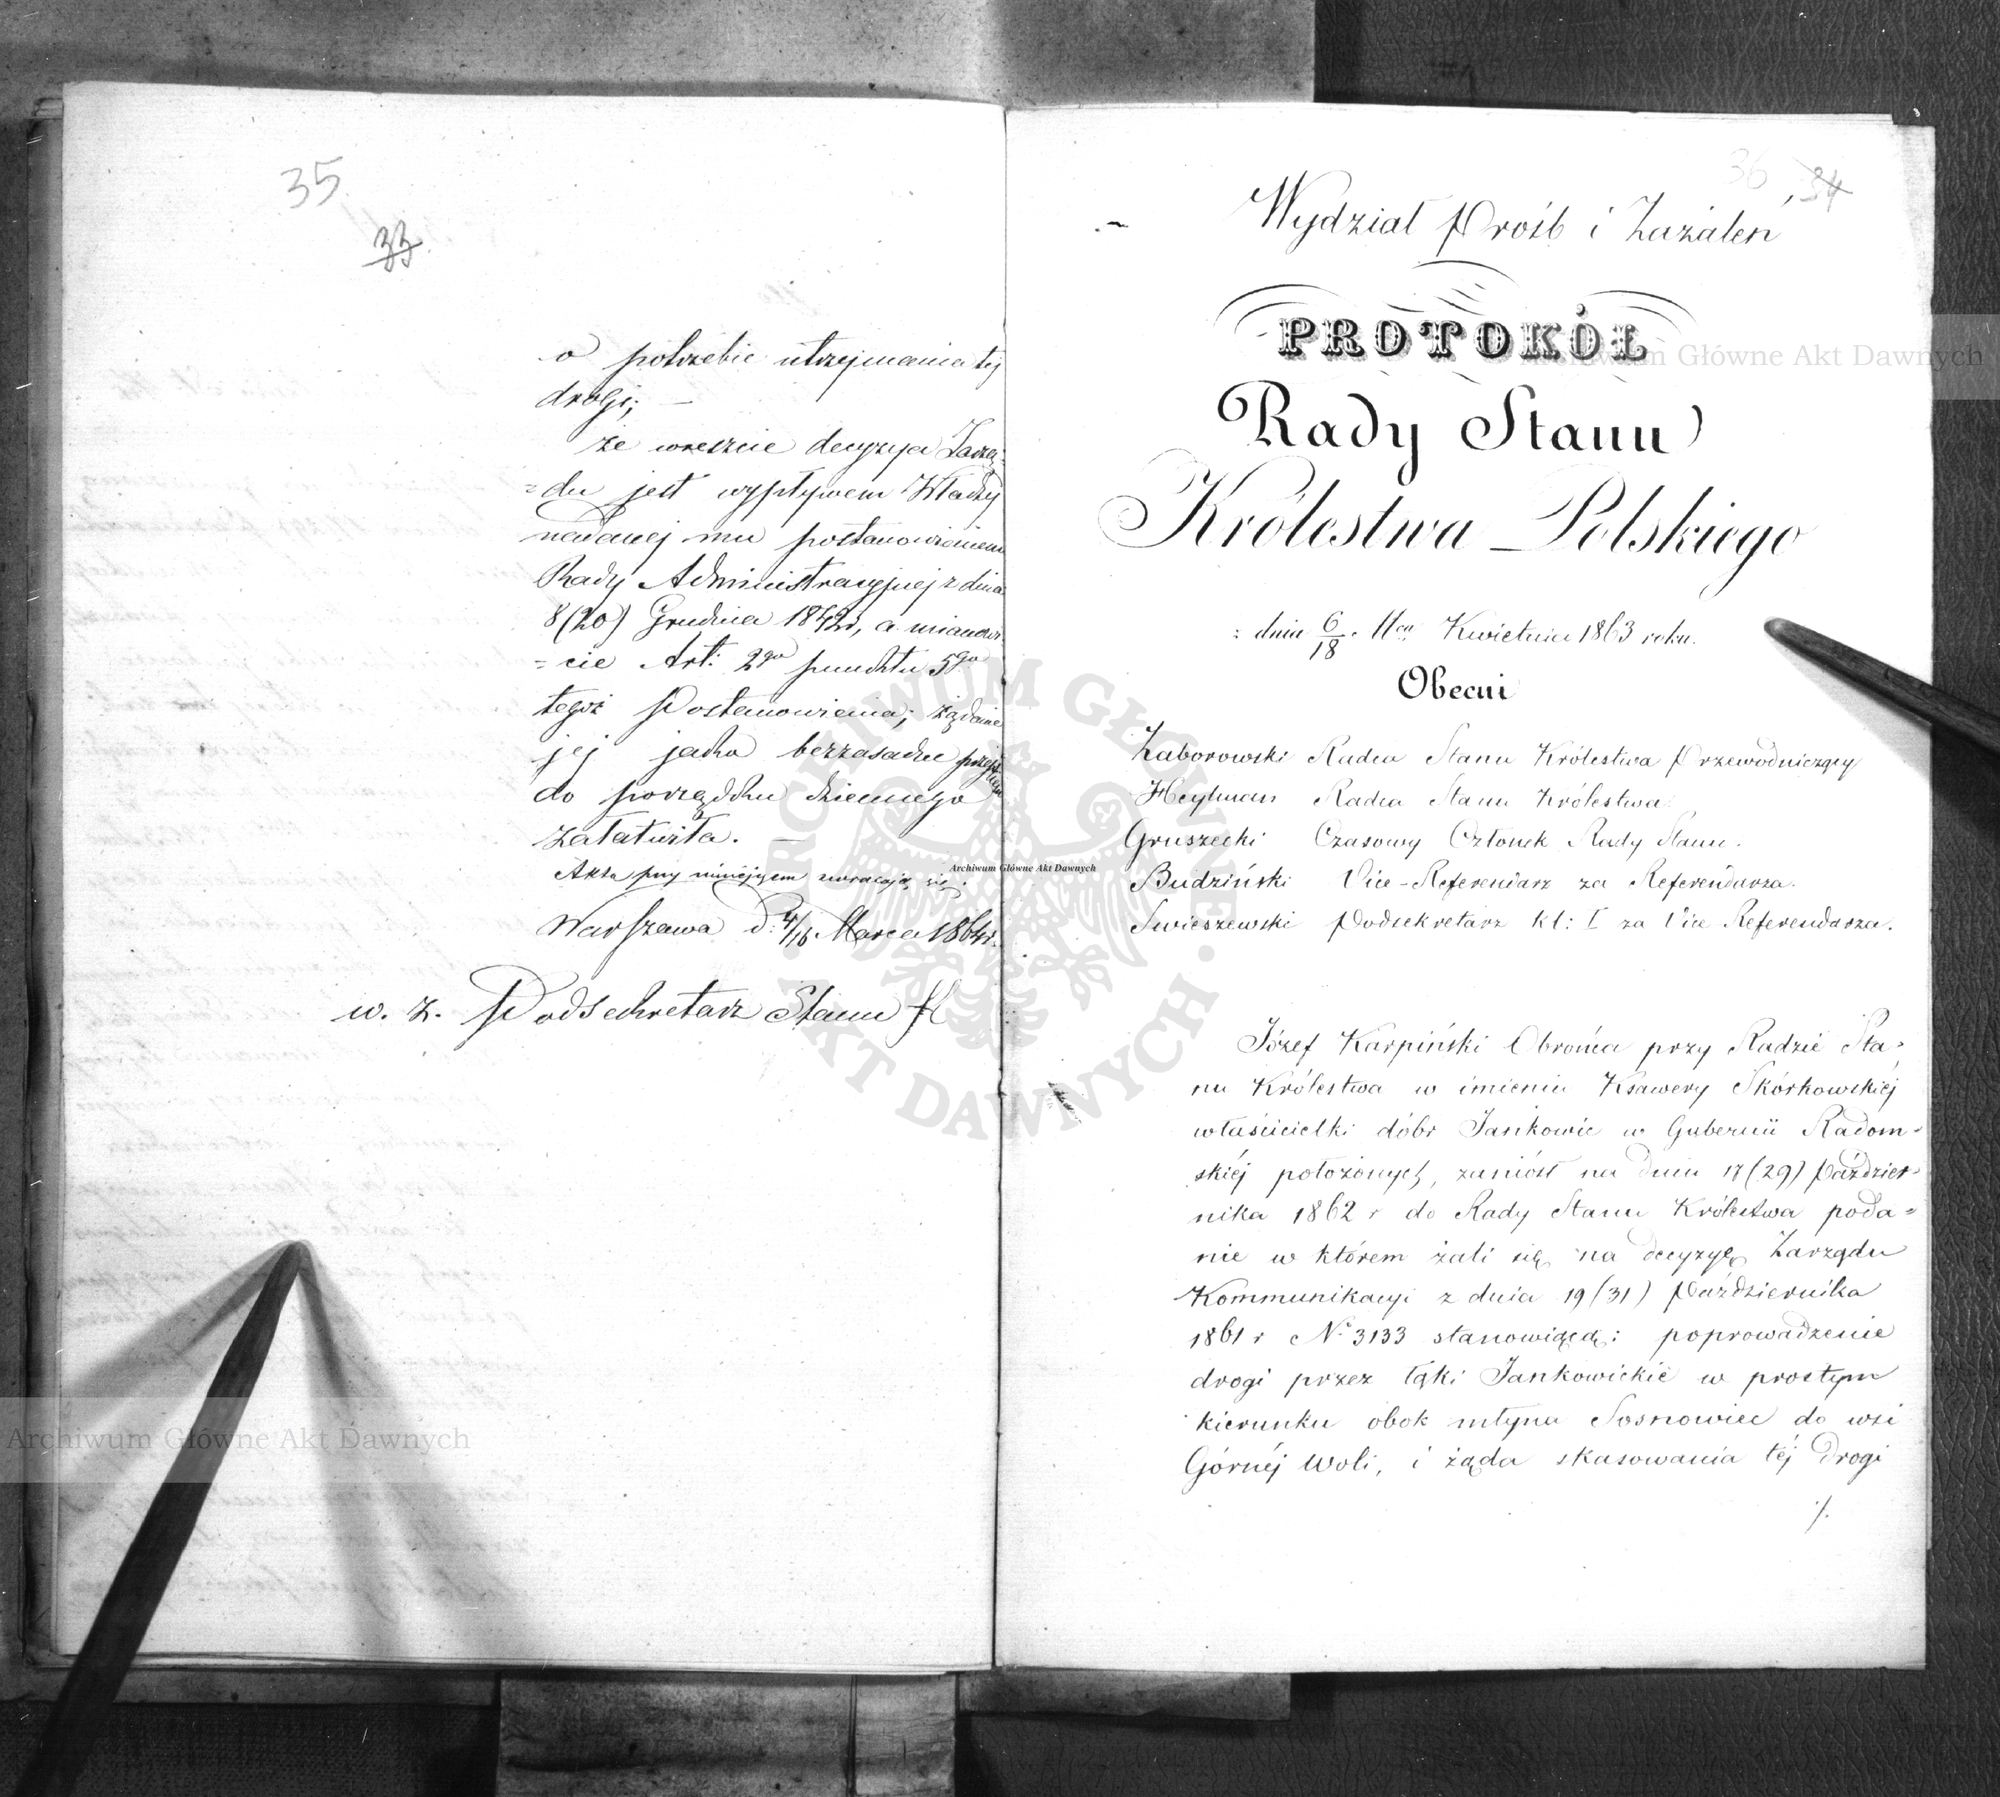 35
33
o potrzebie utrzymania tej
drogi; —
że wreszcie decyzya Zarzą-
=du jest wypływem Władzy
nadanej mu postanowieniem
Rady Administracyjnej z dnia
8 (20) Grudnia 1842 r, a mianowi
=cie Art: 2go punktu 5go
tegoż Postanowienia; żądanie
jej jako bezzasadne przejściem
do porządku dziennego
załatwiła. —
Akta przy niniejszem zwracają się.
Warszawa d. 4/16 Marca 1864 r.
w. z. Podsekretarz Stanu
36 34
Wydział Próśb i Zażaleń
PROTOKÓŁ
Rady Stanu
Królestwa Polskiego
z dnia 6/18 Kwietnia 1863 roku.
Obecni
Zaborowski Radca Stanu Królestwa Przewodniczący
Heylman Radca Stanu Królestwa
Gruszecki Czasowy Członek Rady Stanu.
Budziński Vice-Referendarz za Referendarza.
Swieszewski Podsekretarz kl: I za Vice Referendarza.
Józef Karpiński Obrońca przy Radzie Sta-
nu Królestwa w imieniu Ksawery Skórkowskiéj
właścicielki dóbr Jankowic w Gubernii Radom-
skiéj położonych, zaniósł na dniu 17 (29) Paździer-
nika 1862 r do Rady Stanu Królestwa poda=
nie w którem żali się na decyzyę Zarządu
Kommunikacyi z dnia 19 (31) Października
1861 r № 3133 stanowiącą: poprowadzenie
drogi przez łąki Jankowickie w prostym
kierunku obok młyna Sosnowiec do wsi
Górnéj Woli, i żąda skasowania téj drogi
./.
Archiwum Główne Akt Dawnych
Archiwum Główne Akt Dawnych
Archiwum Główne Akt Dawnych
ARCHIWUM GŁÓWNE AKT DAWNYCH